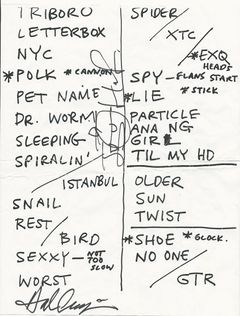 TRIBORO
LETTERBOX
NYC
*POLK *CANNON
PET NAME
DR. WORM
SLEEPING
SPIRALIN'
ISTANBUL
SNAIL
REST/
BIRD
SEXXY - NOT TOO SLOW
WORST
SPIDER/
XTC/
*EXQ
HEADS
SPY - FLANS START
*LIE *STICK
PARTICLE
ANA NG
GIRL
TIL MY HD
OLDER
SUN
TWIST
*SHOE *GLOCK.
NO ONE/
GTR